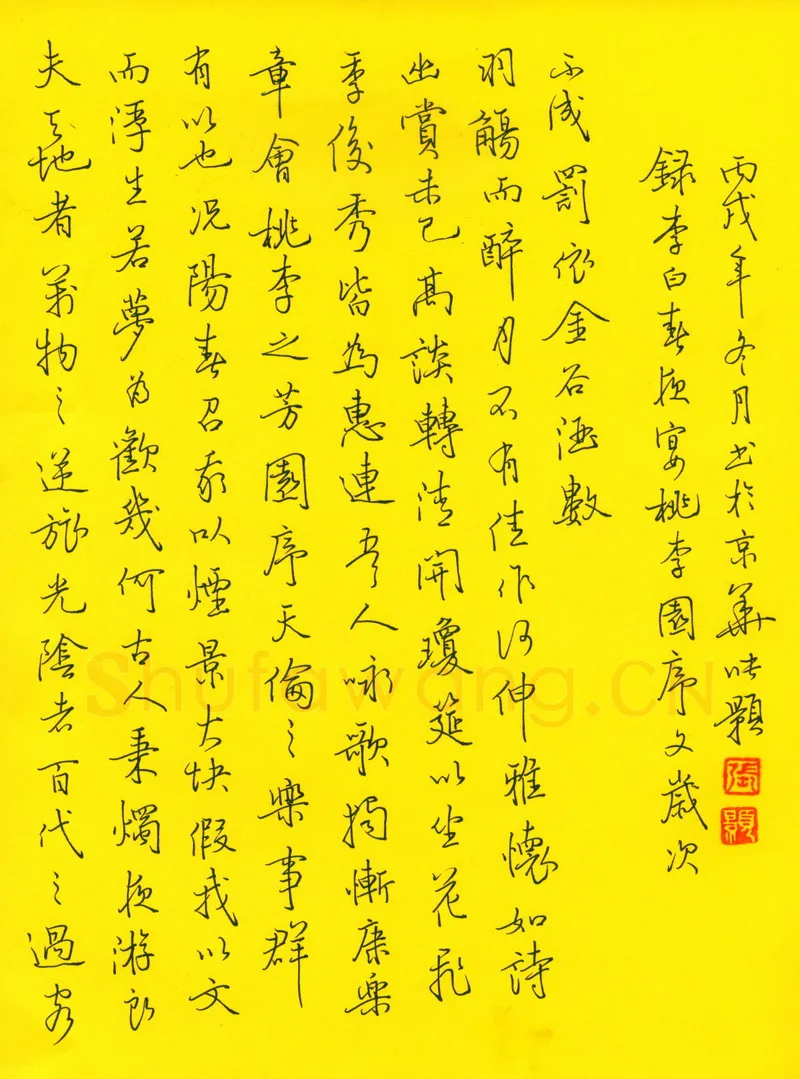 夫天地者萬物之逆旅光陰者百代之過客
而浮生若夢為歡幾何古人秉燭夜游良
有以也况陽春召我以煙景大块假我以文
章會桃李之芳園序天倫之樂事群
季俊秀皆為惠連吾人咏歌獨慚康樂
幽賞未已高談轉清開瓊筵以坐花飛
羽觴而醉月不有佳作何伸雅懷如詩
不成罰依金谷酒數
録李白春夜宴桃李園序文歲次
丙戌年冬月書於京華張
張
Shufawang.CN